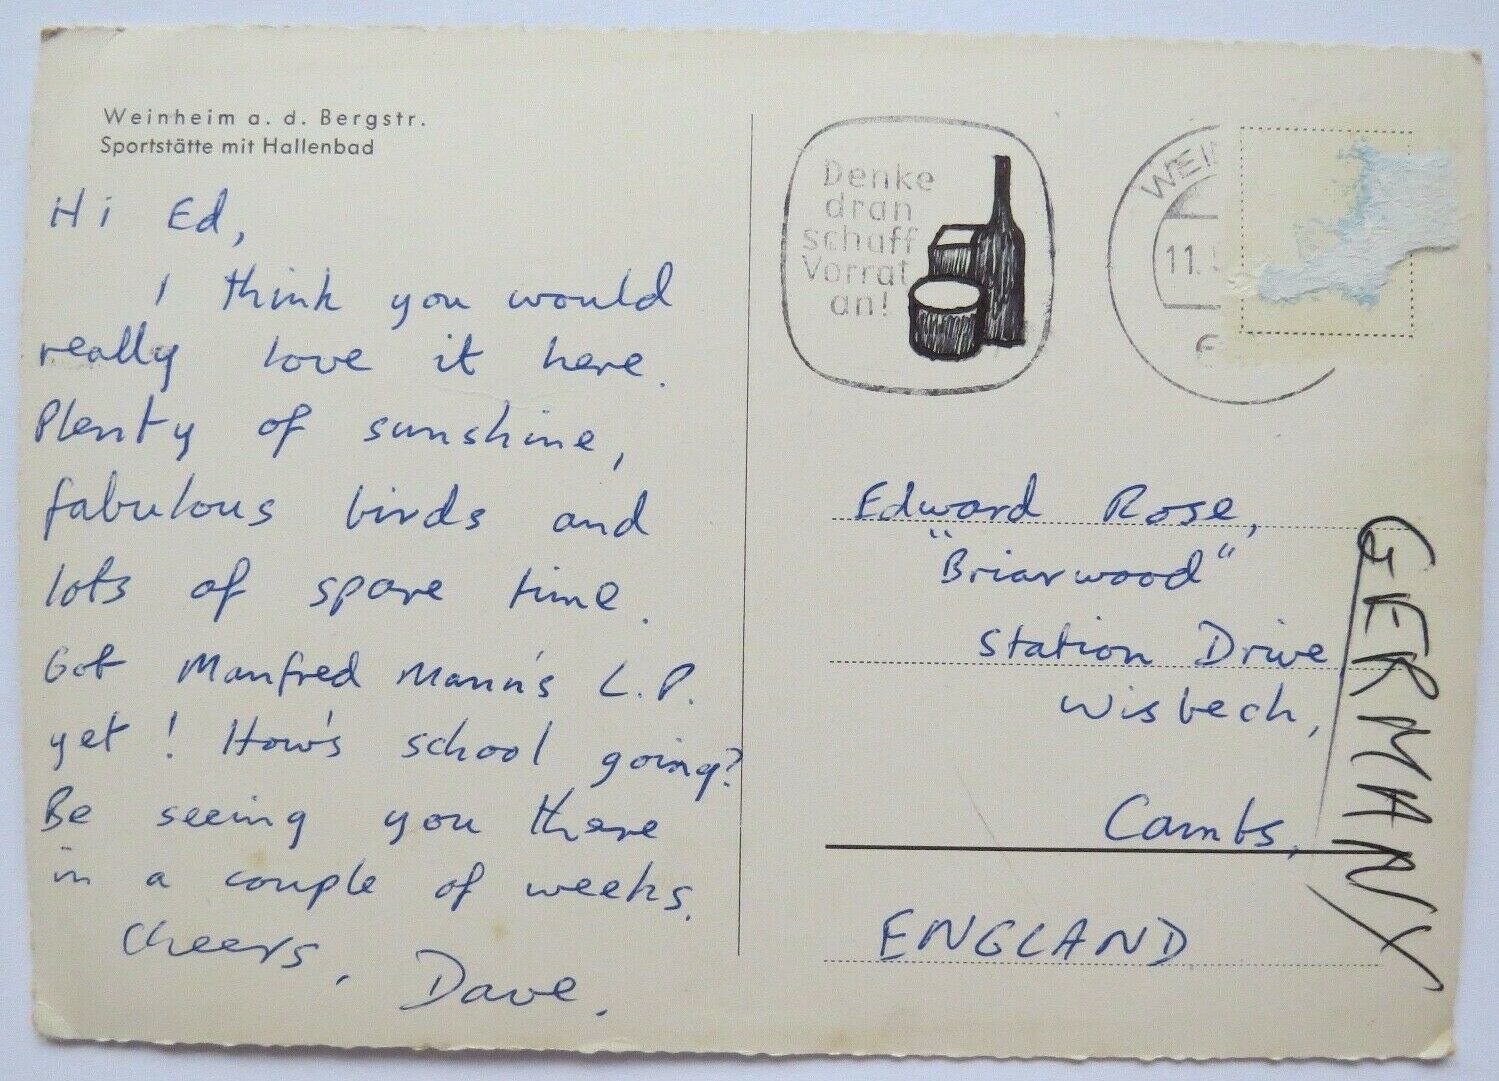 Weinheim a. d. Bergstr.
Sportstätte mit Hallenbad
Hi Ed,
I think you would
really love it here.
Plenty of sunshine,
fabulous birds and
lots of spare time.
Got Manfred Mann's L.P.
yet! How's school going?
Be seeing you there
in a couple of weeks.
Cheers, Dave.
Denke
dran
schaff
Vorrat
an!
WEI
11.
Edward Rose,
"Briarwood"
Station Drive
Wisbech,
Cambs,
ENGLAND
GERMANY